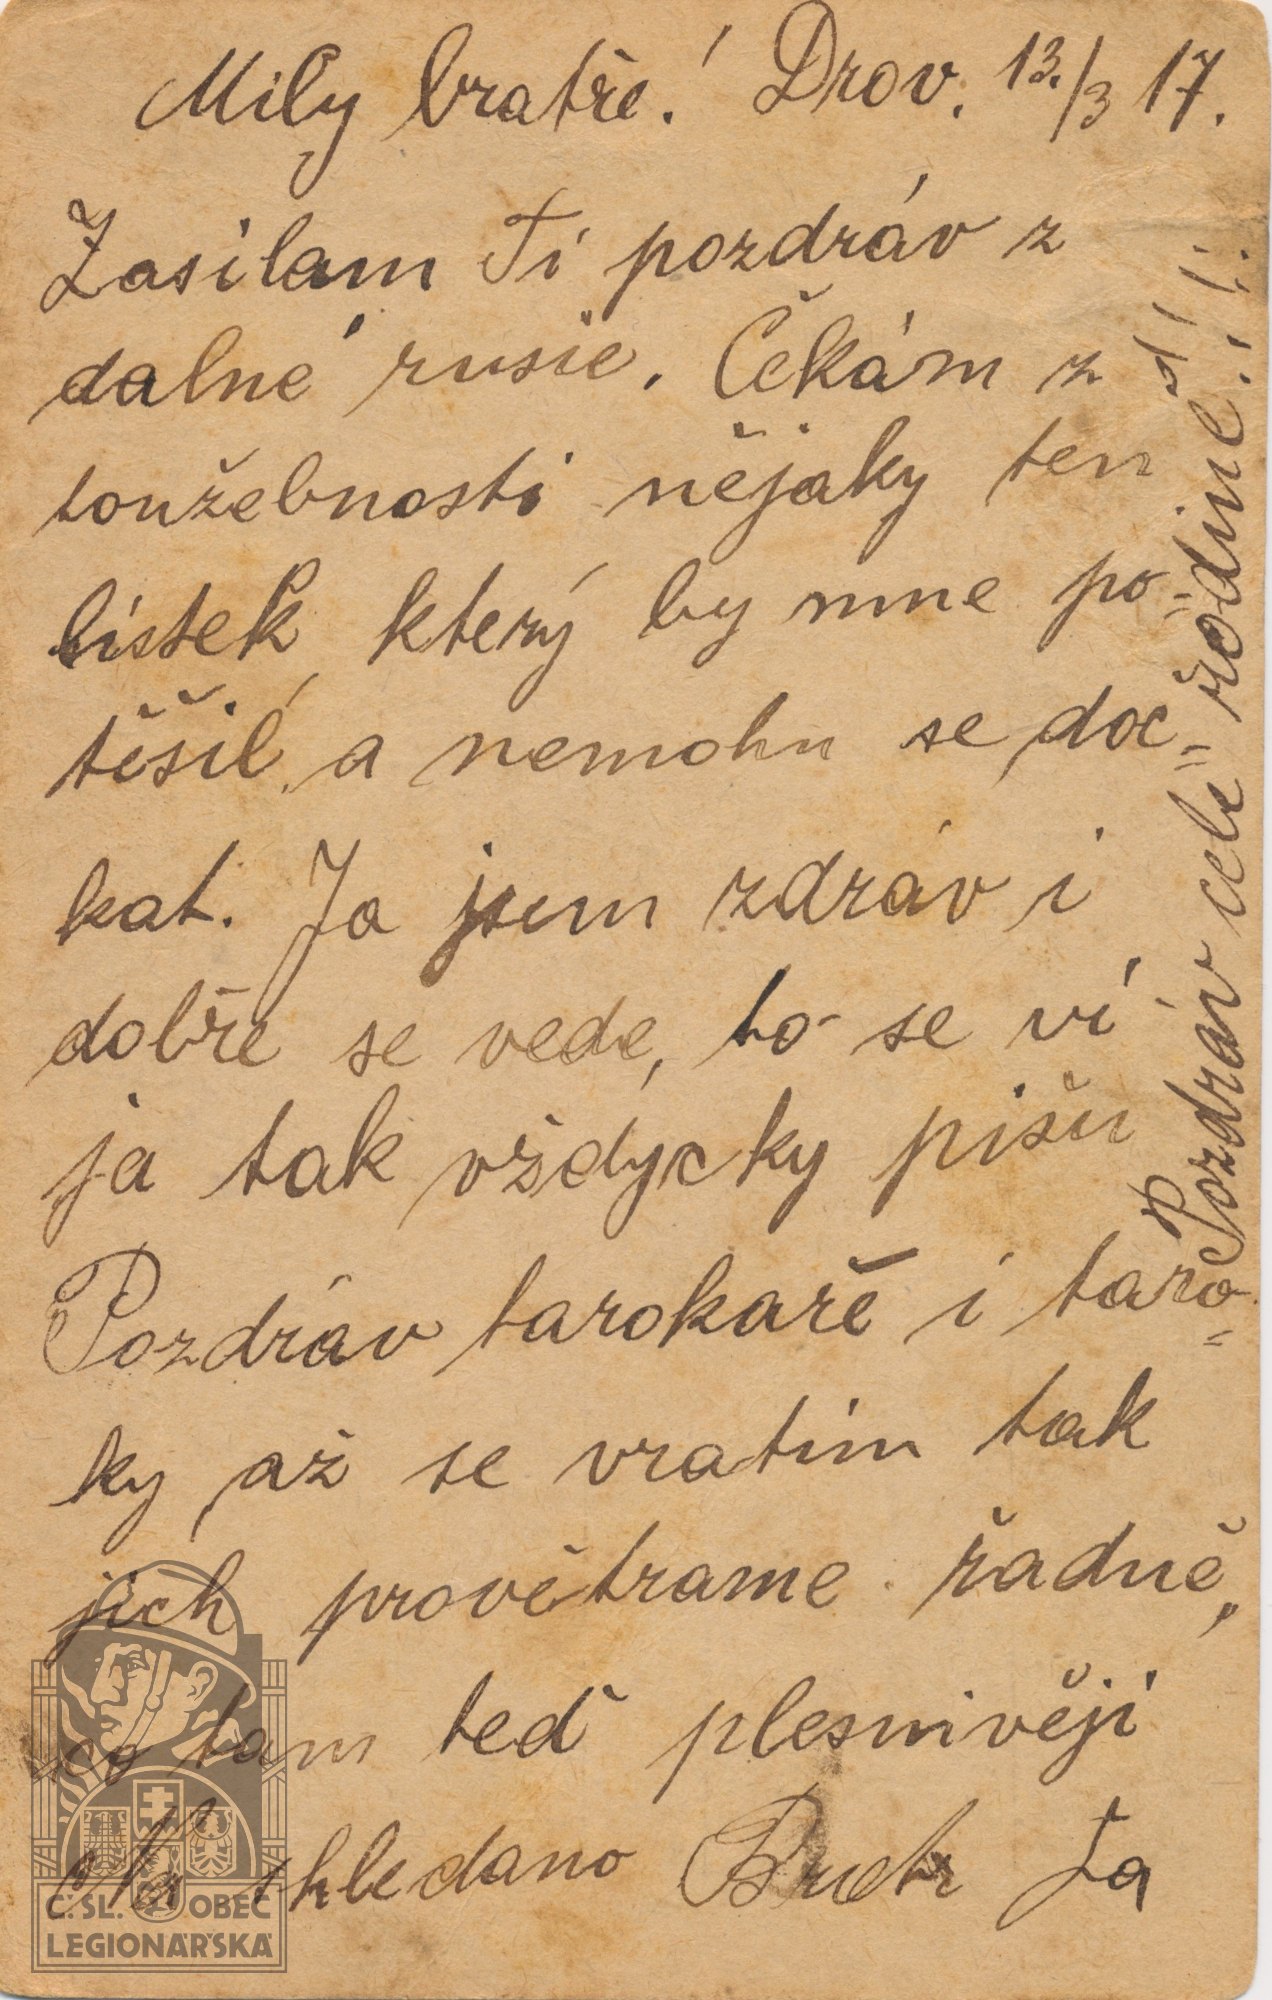 Mily bratře! Drov. 13./3 17.
Zasilam Ti pozdráv z
dalné rusie. Čekám z
toužebnosti nějaky ten
lístek který by mne po-
těšil, a nemohu se doč=
kat. Ja jsem zdráv i
dobře se vede, to se ví
ja tak vždycky pišu
Pozdráv tarokaře i taro=
ky, až se vratim tak
jich provětrame řadně,
co tam teď plesnivěji
Na shledano Bratr
Pozdráv celé rodině!
C.SL. OBEC
LEGIONÁŘSKÁ